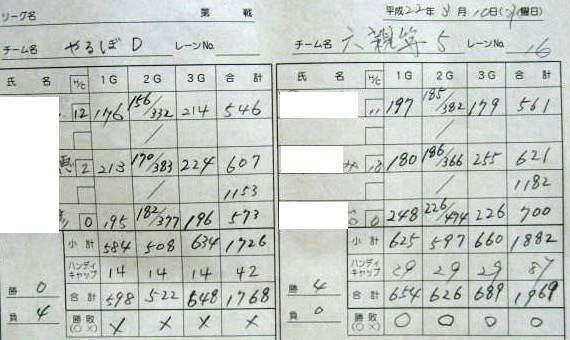 リーグ名 第 戦
チーム名 やるぼD レーンNo.
氏 名 H/C 1G 2G 3G 合計
12 176 156/332 214 546
/
2 213 170/383 224 607
/ 1153
0 195 182/377 196 573
小計 584 508 634 1726
ハンディキャップ 14 14 14 42
合計 598 522 648 1768
勝敗(○×) × × × ×
勝 0
負 4
平成22年 3月10日( 曜日)
チーム名 六親等5 レーンNo. 16
氏 名 H/C 1G 2G 3G 合計
11 197 185/382 179 561
/
18 180 186/366 255 621
/ 1182
0 248 226/474 226 700
小計 625 597 660 1882
ハンディキャップ 29 29 29 87
合計 654 626 689 1969
勝敗(○×) ○ ○ ○ ○
勝 4
負 0